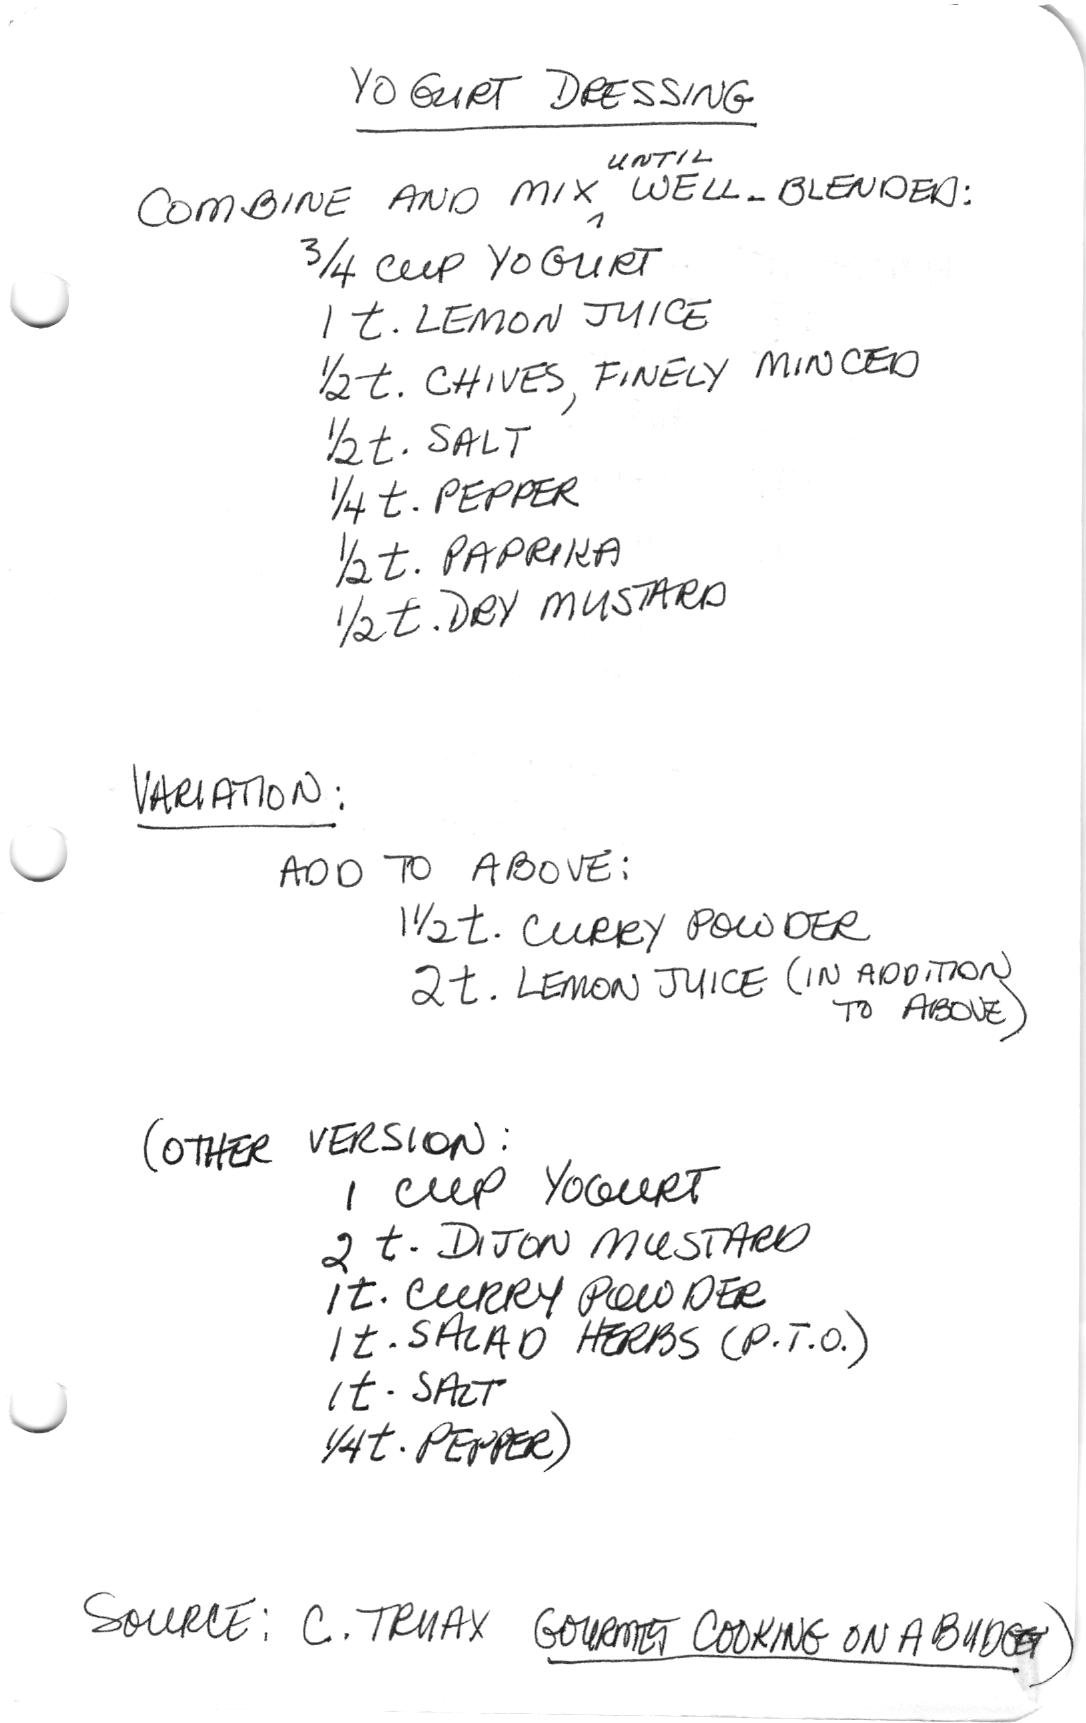 YOGURT DRESSING
COMBINE AND MIX UNTIL WELL-BLENDED:
3/4 CUP YOGURT
1 t. LEMON JUICE
1/2 t. CHIVES, FINELY MINCED
1/2 t. SALT
1/4 t. PEPPER
1/2 t. PAPRIKA
1/2 t. DRY MUSTARD
VARIATION:
ADD TO ABOVE:
1 1/2 t. CURRY POWDER
2 t. LEMON JUICE (IN ADDITION
TO ABOVE)
(OTHER VERSION:
1 CUP YOGURT
2 t. DIJON MUSTARD
1 t. CURRY POWDER
1 t. SALAD HERBS (P.T.O.)
1 t. SALT
1/4 t. PEPPER)
SOURCE: C. TRUAX GOURMET COOKING ON A BUDGET)